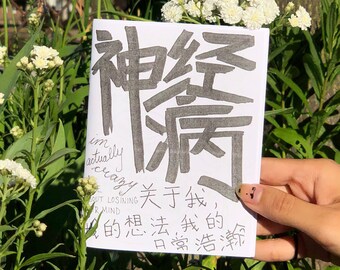 神经病
im
actually
crazy
关于我，
的想法我的
日常浩瀚